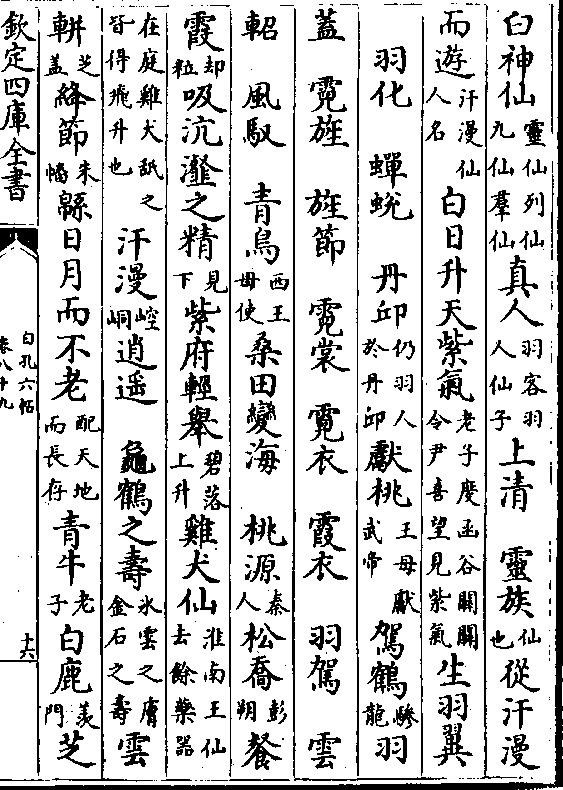 臼神仙靈仙列仙九仙羣仙真人羽客羽人仙子上清　靈族仙也從汗漫
而遊汗漫仙人名　白日升天紫氣老子度函谷關關令尹喜望見紫氣生羽翼
羽化　蟬蛻　丹邱仍羽人於丹邱獻桃王母獻武帝　駕鶴驂龍羽
蓋　霓旌　旌節　霓裳　霓衣　霞衣　羽駕　雲
軺　風馭　青鳥西王母使桑田變海　桃源秦人松喬彭朔餐
霞却粒吸沆瀣之精見下紫府輕舉碧落上升雞犬仙淮南王仙去餘藥器
在庭雞犬舐之皆得飛升也　汗漫崆峒逍遥　龜鶴之壽氷雲之膚金石之壽雲
軿芝蓋絳節朱幡縣日月而不老配天地而長存青牛老子白鹿羨門芝
欽定四庫全書
白孔六帖
卷八十九
十六